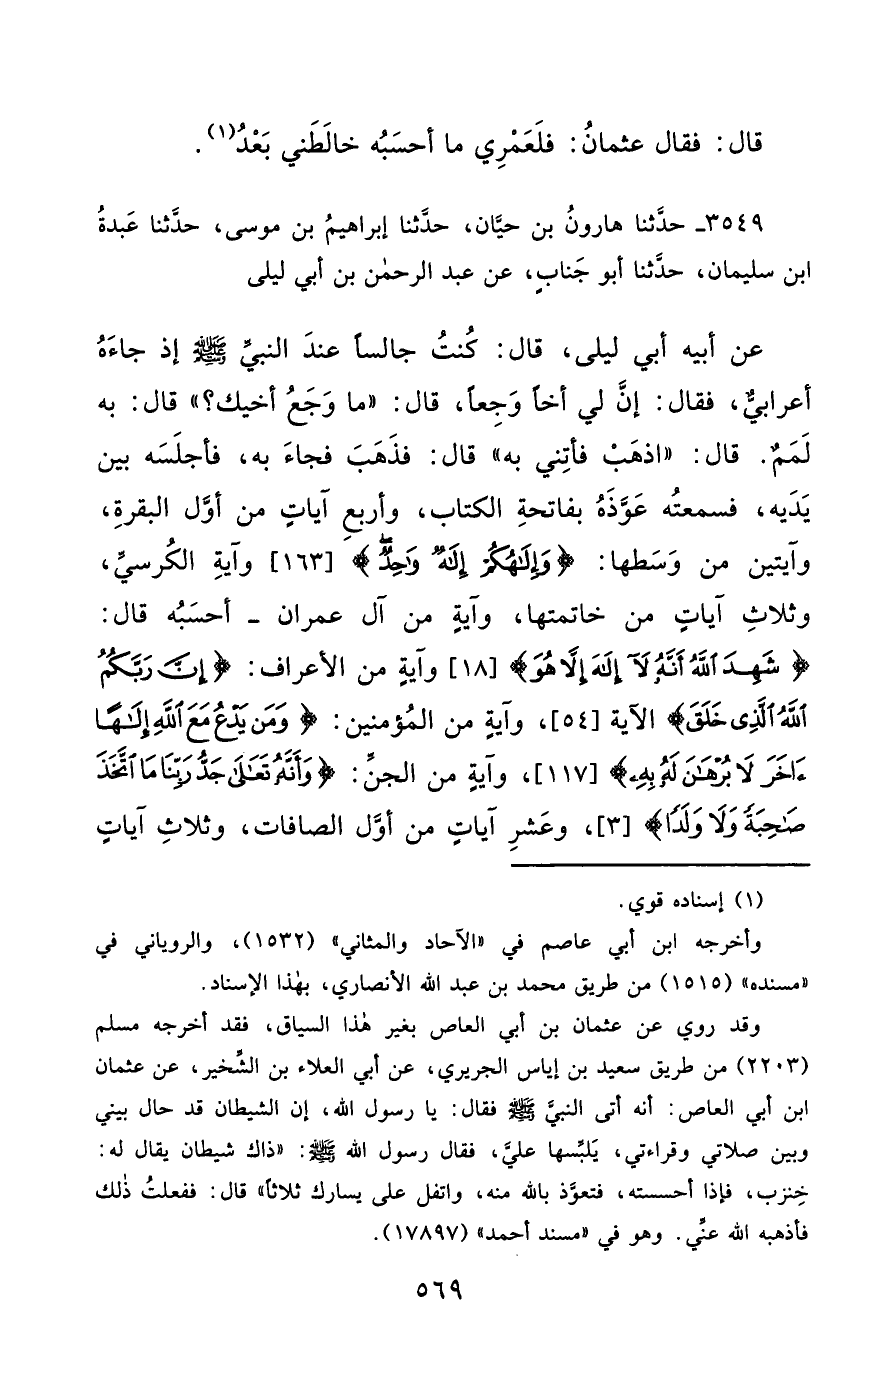 قال: فقال عثمانُ: فلَعَمْرِي ما أحسَبُه خالَطَني بَعْدُ(١).
٣٥٤٩ـ حدَّثنا هارونُ بن حيَّان، حدَّثنا إبراهيمُ بن موسى، حدَّثنا عَبدةُ
ابن سليمان، حدَّثنا أبو جَنابٍ، عن عبد الرحمٰن بن أبي ليلى
عن أبيه أبي ليلى، قال: كُنتُ جالساً عندَ النبيِّ ﷺ إذ جاءَهُ
أعرابيٌّ، فقال: إنَّ لي أخاً وَجِعاً، قال: «ما وَجَعُ أخيك؟» قال: به
لَمَمٌ. قال: «اذهَبْ فأتِني به» قال: فذَهَبَ فجاءَ به، فأجلَسَه بين
يَدَيه، فسمعتُه عَوَّذَهُ بفاتحةِ الكتاب، وأربعِ آياتٍ من أوَّل البقرةِ،
وآيتين من وَسَطها: ﴿وَإِلَٰهُكُمْ إِلَٰهٌ وَٰحِدٌ ۖ﴾ [١٦٣] وآيةِ الكُرسيِّ،
وثلاثِ آياتٍ من خاتمتها، وآيةٍ من آل عمران - أحسَبُه قال:
﴿شَهِدَ ٱللَّهُ أَنَّهُۥ لَآ إِلَٰهَ إِلَّا هُوَ﴾ [١٨] وآيةٍ من الأعراف: ﴿إِنَّ رَبَّكُمُ
ٱللَّهُ ٱلَّذِى خَلَقَ﴾ الآية [٥٤]، وآيةٍ من المُؤمنين: ﴿وَمَن يَدْعُ مَعَ ٱللَّهِ إِلَٰهًا
ءَاخَرَ لَا بُرْهَٰنَ لَهُۥ بِهِۦ﴾ [١١٧]، وآيةٍ من الجنِّ: ﴿وَأَنَّهُۥ تَعَٰلَىٰ جَدُّ رَبِّنَا مَا ٱتَّخَذَ
صَٰحِبَةً وَلَا وَلَدًا﴾ [٣]، وعَشرِ آياتٍ من أوَّل الصافات، وثلاثِ آياتٍ
(١) إسناده قوي.
وأخرجه ابن أبي عاصم في «الآحاد والمثاني» (١٥٣٢)، والروياني في
«مسنده» (١٥١٥) من طريق محمد بن عبد الله الأنصاري، بهٰذا الإسناد.
وقد روي عن عثمان بن أبي العاص بغير هٰذا السياق، فقد أخرجه مسلم
(٢٢٠٣) من طريق سعيد بن إياس الجريري، عن أبي العلاء بن الشِّخير، عن عثمان
ابن أبي العاص: أنه أتى النبيَّ ﷺ فقال: يا رسول الله، إن الشيطان قد حال بيني
وبين صلاتي وقراءتي، يَلبِّسها عليَّ، فقال رسول الله ﷺ: «ذاك شيطان يقال له:
خِنزب، فإذا أحسسته، فتعوَّذ بالله منه، واتفل على يسارك ثلاثاً» قال: ففعلتُ ذٰلك
فأذهبه الله عنِّي. وهو في «مسند أحمد» (١٧٨٩٧).
٥٦٩